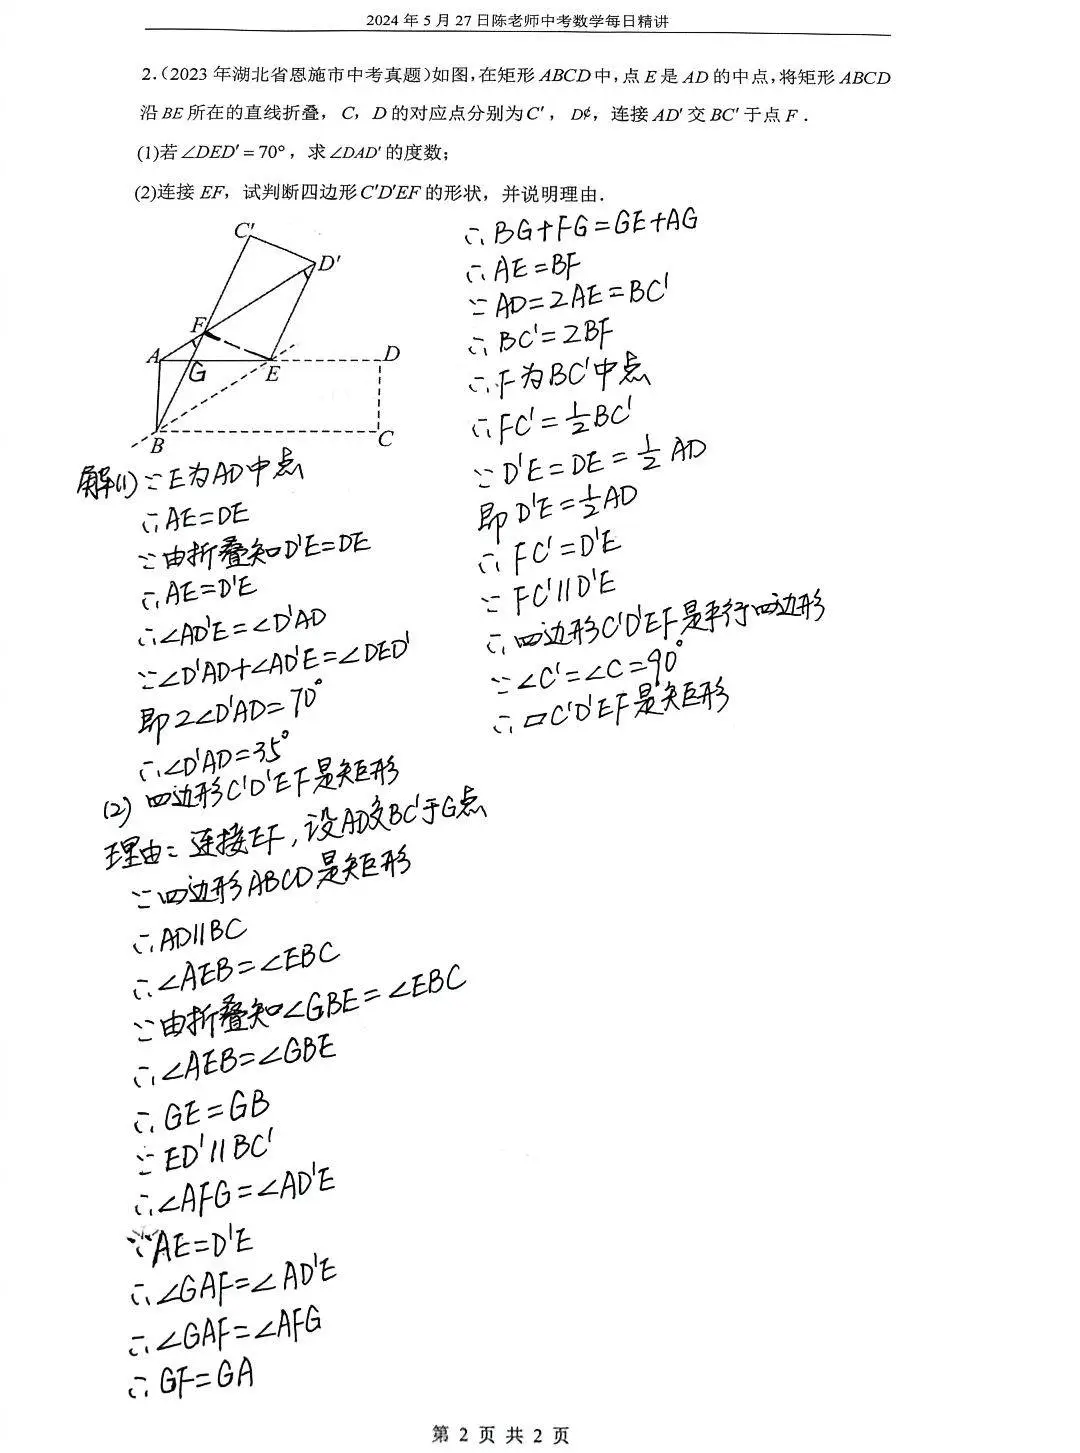 2024 年 5 月 27 日陈老师中考数学每日精讲
2.(2023 年湖北省恩施市中考真题)如图,在矩形 ABCD 中,点 E 是 AD 的中点,将矩形 ABCD
沿 BE 所在的直线折叠，C，D 的对应点分别为 C′，D¢，连接 AD′ 交 BC′ 于点 F．
(1)若∠DED′=70°，求∠DAD′ 的度数；
(2)连接 EF，试判断四边形 C′D′EF 的形状，并说明理由．
C′
D′
F
A
G
E
D
B
C
解(1)∵E为AD中点
∴AE=DE
∵由折叠知D′E=DE
∴AE=D′E
∴∠AD′E=∠D′AD
∵∠D′AD+∠AD′E=∠DED′
即2∠D′AD=70°
∴∠D′AD=35°
(2) 四边形C′D′EF是矩形
理由：连接EF,设AD交BC′于G点
∵四边形ABCD是矩形
∴AD∥BC
∴∠AEB=∠EBC
∵由折叠知∠GBE=∠EBC
∴∠AEB=∠GBE
∴GE=GB
∵ED′∥BC′
∴∠AFG=∠AD′E
∵AE=D′E
∴∠GAF=∠AD′E
∴∠GAF=∠AFG
∴GF=GA
∴BG+FG=GE+AG
∴AE=BF
∵AD=2AE=BC′
∴BC′=2BF
∴F为BC′中点
∴FC′=½BC′
∵D′E=DE=½AD
即D′E=½AD
∴FC′=D′E
∵FC′∥D′E
∴四边形C′D′EF是平行四边形
∵∠C′=∠C=90°
∴▱C′D′EF是矩形
第 2 页 共 2 页